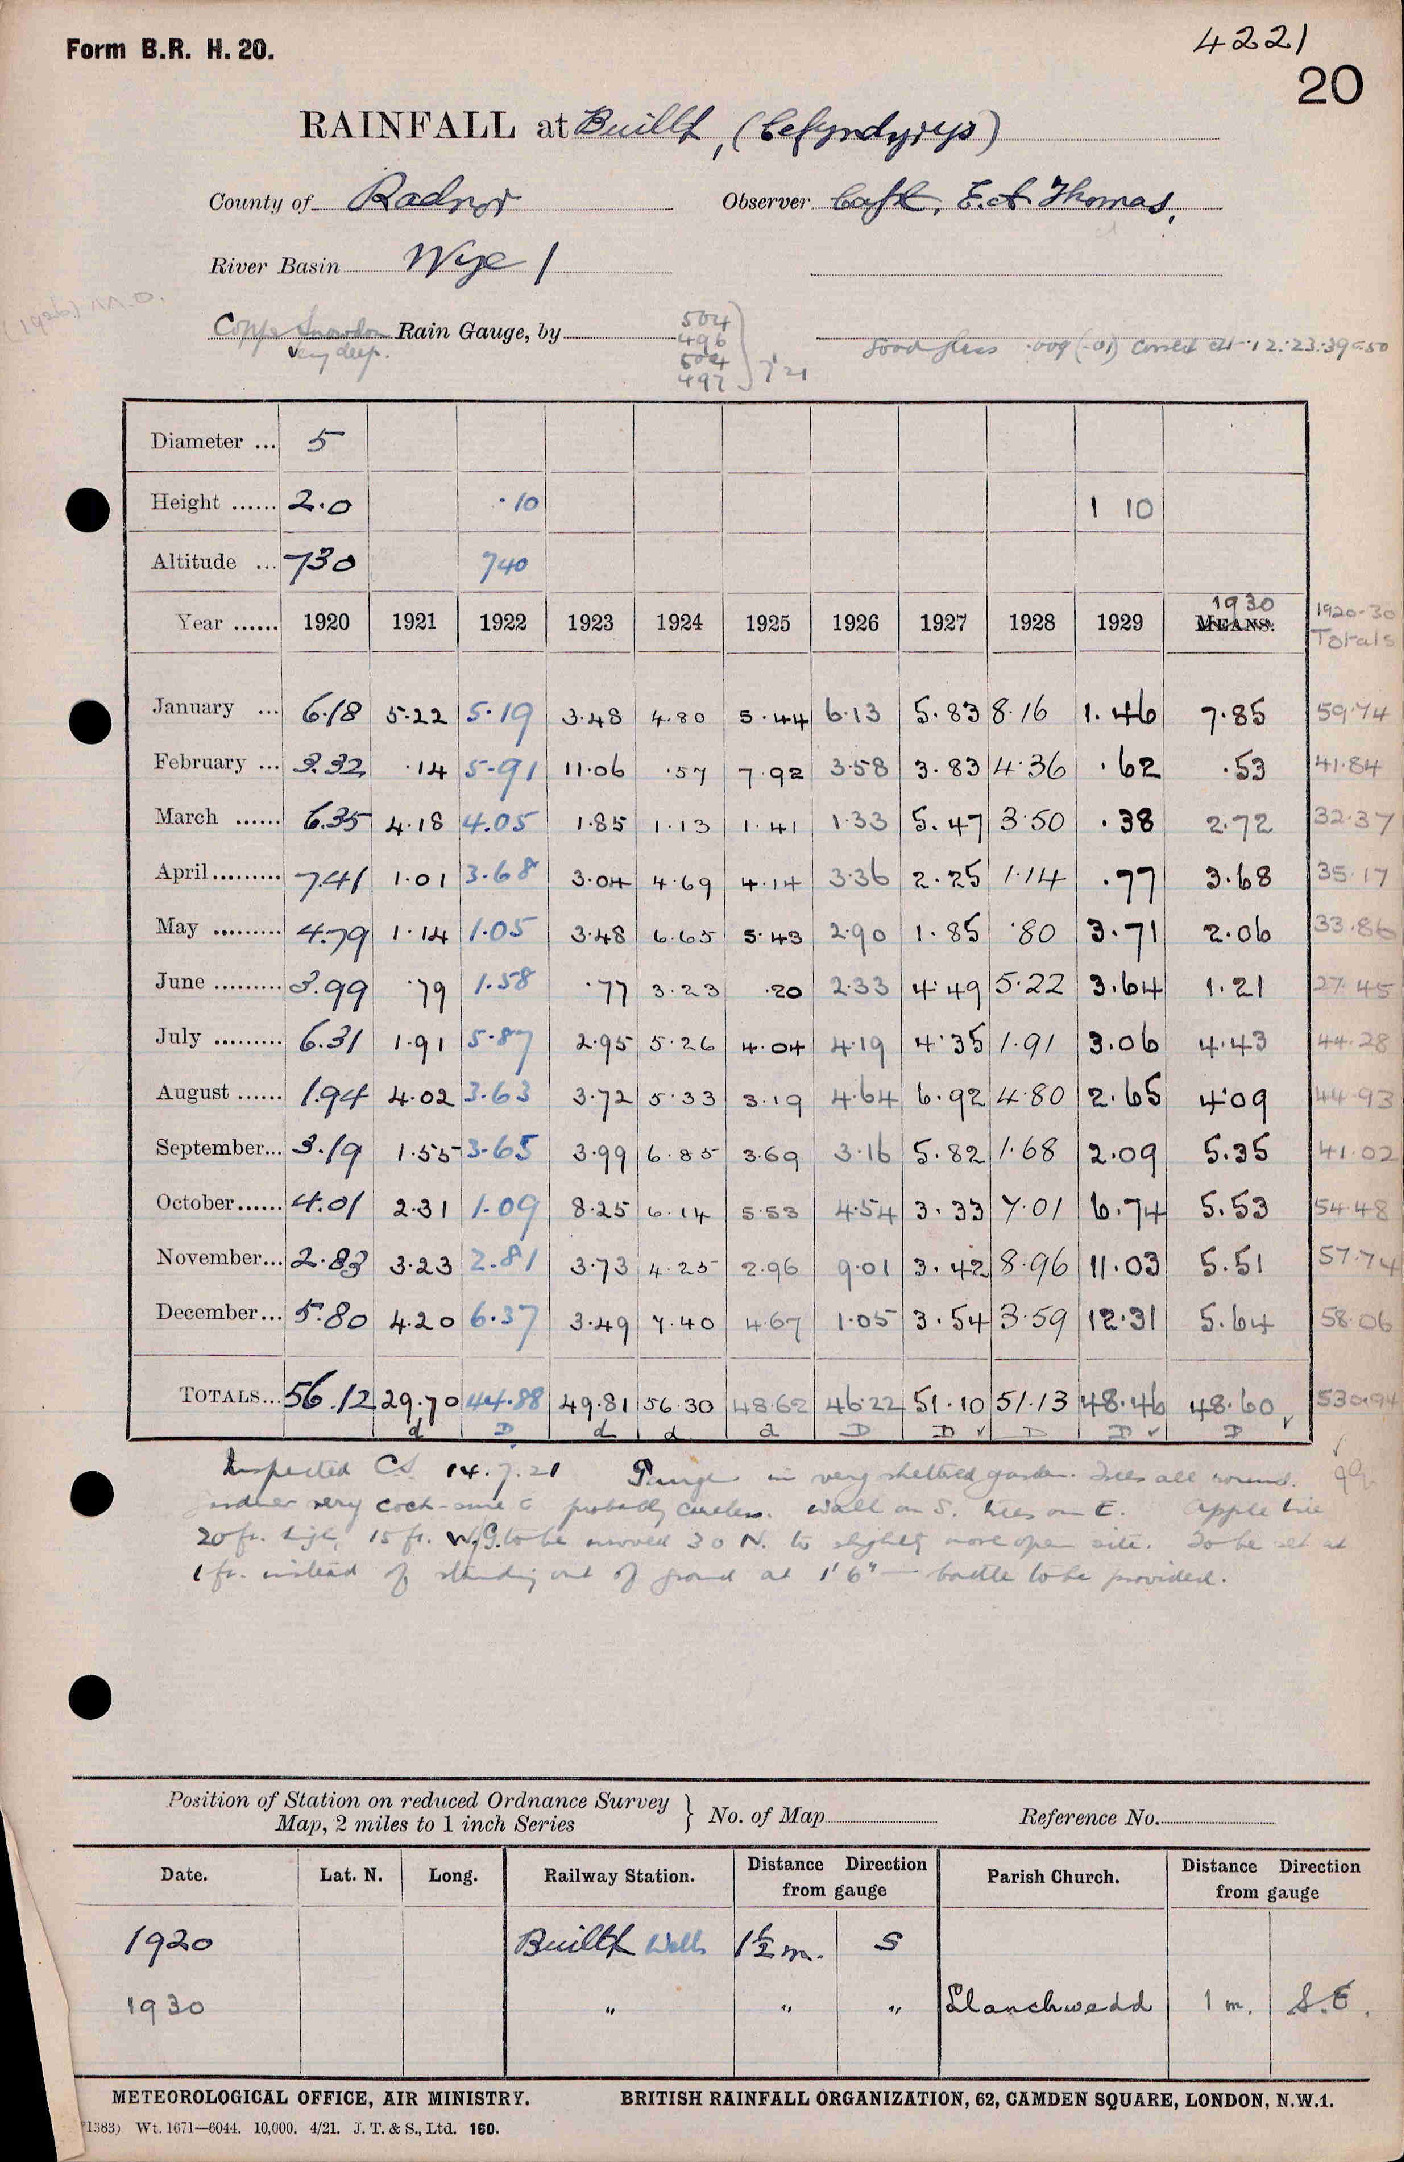 Form B.R. H. 20.
4221
20
RAINFALL at Builth, (Cefyndyrys)
County of Radnor Observer Capt. E. A. Thomas,
River Basin Wye 1
(1926) M.O.
Copper Snowdon Rain Gauge, by
very deep.
504
496
504
497
Good glass .009 (-01) correct at .12.23.39=50
Diameter ... 5
Height ...... 2.0 .10 1 10
Altitude ... 730 740
Year ...... 1920 1921 1922 1923 1924 1925 1926 1927 1928 1929 1930 MEANS. 1920-30 Totals
January ... 6.18 5.22 5.19 3.48 4.80 5.44 6.13 5.83 8.16 1.46 7.85 59.74
February ... 3.32 .14 5.91 11.06 .57 7.92 3.58 3.83 4.36 .62 .53 41.84
March ...... 6.35 4.18 4.05 1.85 1.13 1.41 1.33 5.47 3.50 .38 2.72 32.37
April ......... 7.41 1.01 3.68 3.04 4.69 4.14 3.36 2.25 1.14 .77 3.68 35.17
May ......... 4.79 1.14 1.05 3.48 6.65 5.43 2.90 1.85 .80 3.71 2.06 33.86
June ......... 3.99 .79 1.58 .77 3.23 .20 2.33 4.49 5.22 3.64 1.21 27.45
July ......... 6.31 1.91 5.87 2.95 5.26 4.04 4.19 4.35 1.91 3.06 4.43 44.28
August ...... 1.94 4.02 3.63 3.72 5.33 3.19 4.64 6.92 4.80 2.65 4.09 44.93
September... 3.19 1.55 3.65 3.99 6.85 3.69 3.16 5.82 1.68 2.09 5.35 41.02
October...... 4.01 2.31 1.09 8.25 6.14 5.53 4.54 3.33 7.01 6.74 5.53 54.48
November... 2.83 3.23 2.81 3.73 4.25 2.96 9.01 3.42 8.96 11.03 5.51 57.74
December... 5.80 4.20 6.37 3.49 7.40 4.67 1.05 3.54 3.59 12.31 5.64 58.06
TOTALS... 56.12 29.70 44.88 49.81 56.30 48.62 46.22 51.10 51.13 48.46 48.60 530.94
d D d d d D D D D D
Inspected CS 14.7.21 Gauge in very sheltered garden. Trees all round.
Gardener very cock-sure & probably careless. Wall on S. trees on E. Apple tree
20 ft. high, 15 ft. W. G. to be moved 30 N. to slightly more open site. To be set at
1 ft. instead of standing out of ground at 1'6" — bottle to be provided.
Position of Station on reduced Ordnance Survey
Map, 2 miles to 1 inch Series
No. of Map Reference No.
Date. Lat. N. Long. Railway Station. Distance Direction from gauge Parish Church. Distance Direction from gauge
1920 Builth Wells 1½ m. S
1930 " " " Llanelwedd 1 m. S.E.
METEOROLOGICAL OFFICE, AIR MINISTRY. BRITISH RAINFALL ORGANIZATION, 62, CAMDEN SQUARE, LONDON, N.W.1.
1383) Wt. 1671—6044. 10,000. 4/21. J. T. & S., Ltd. 160.